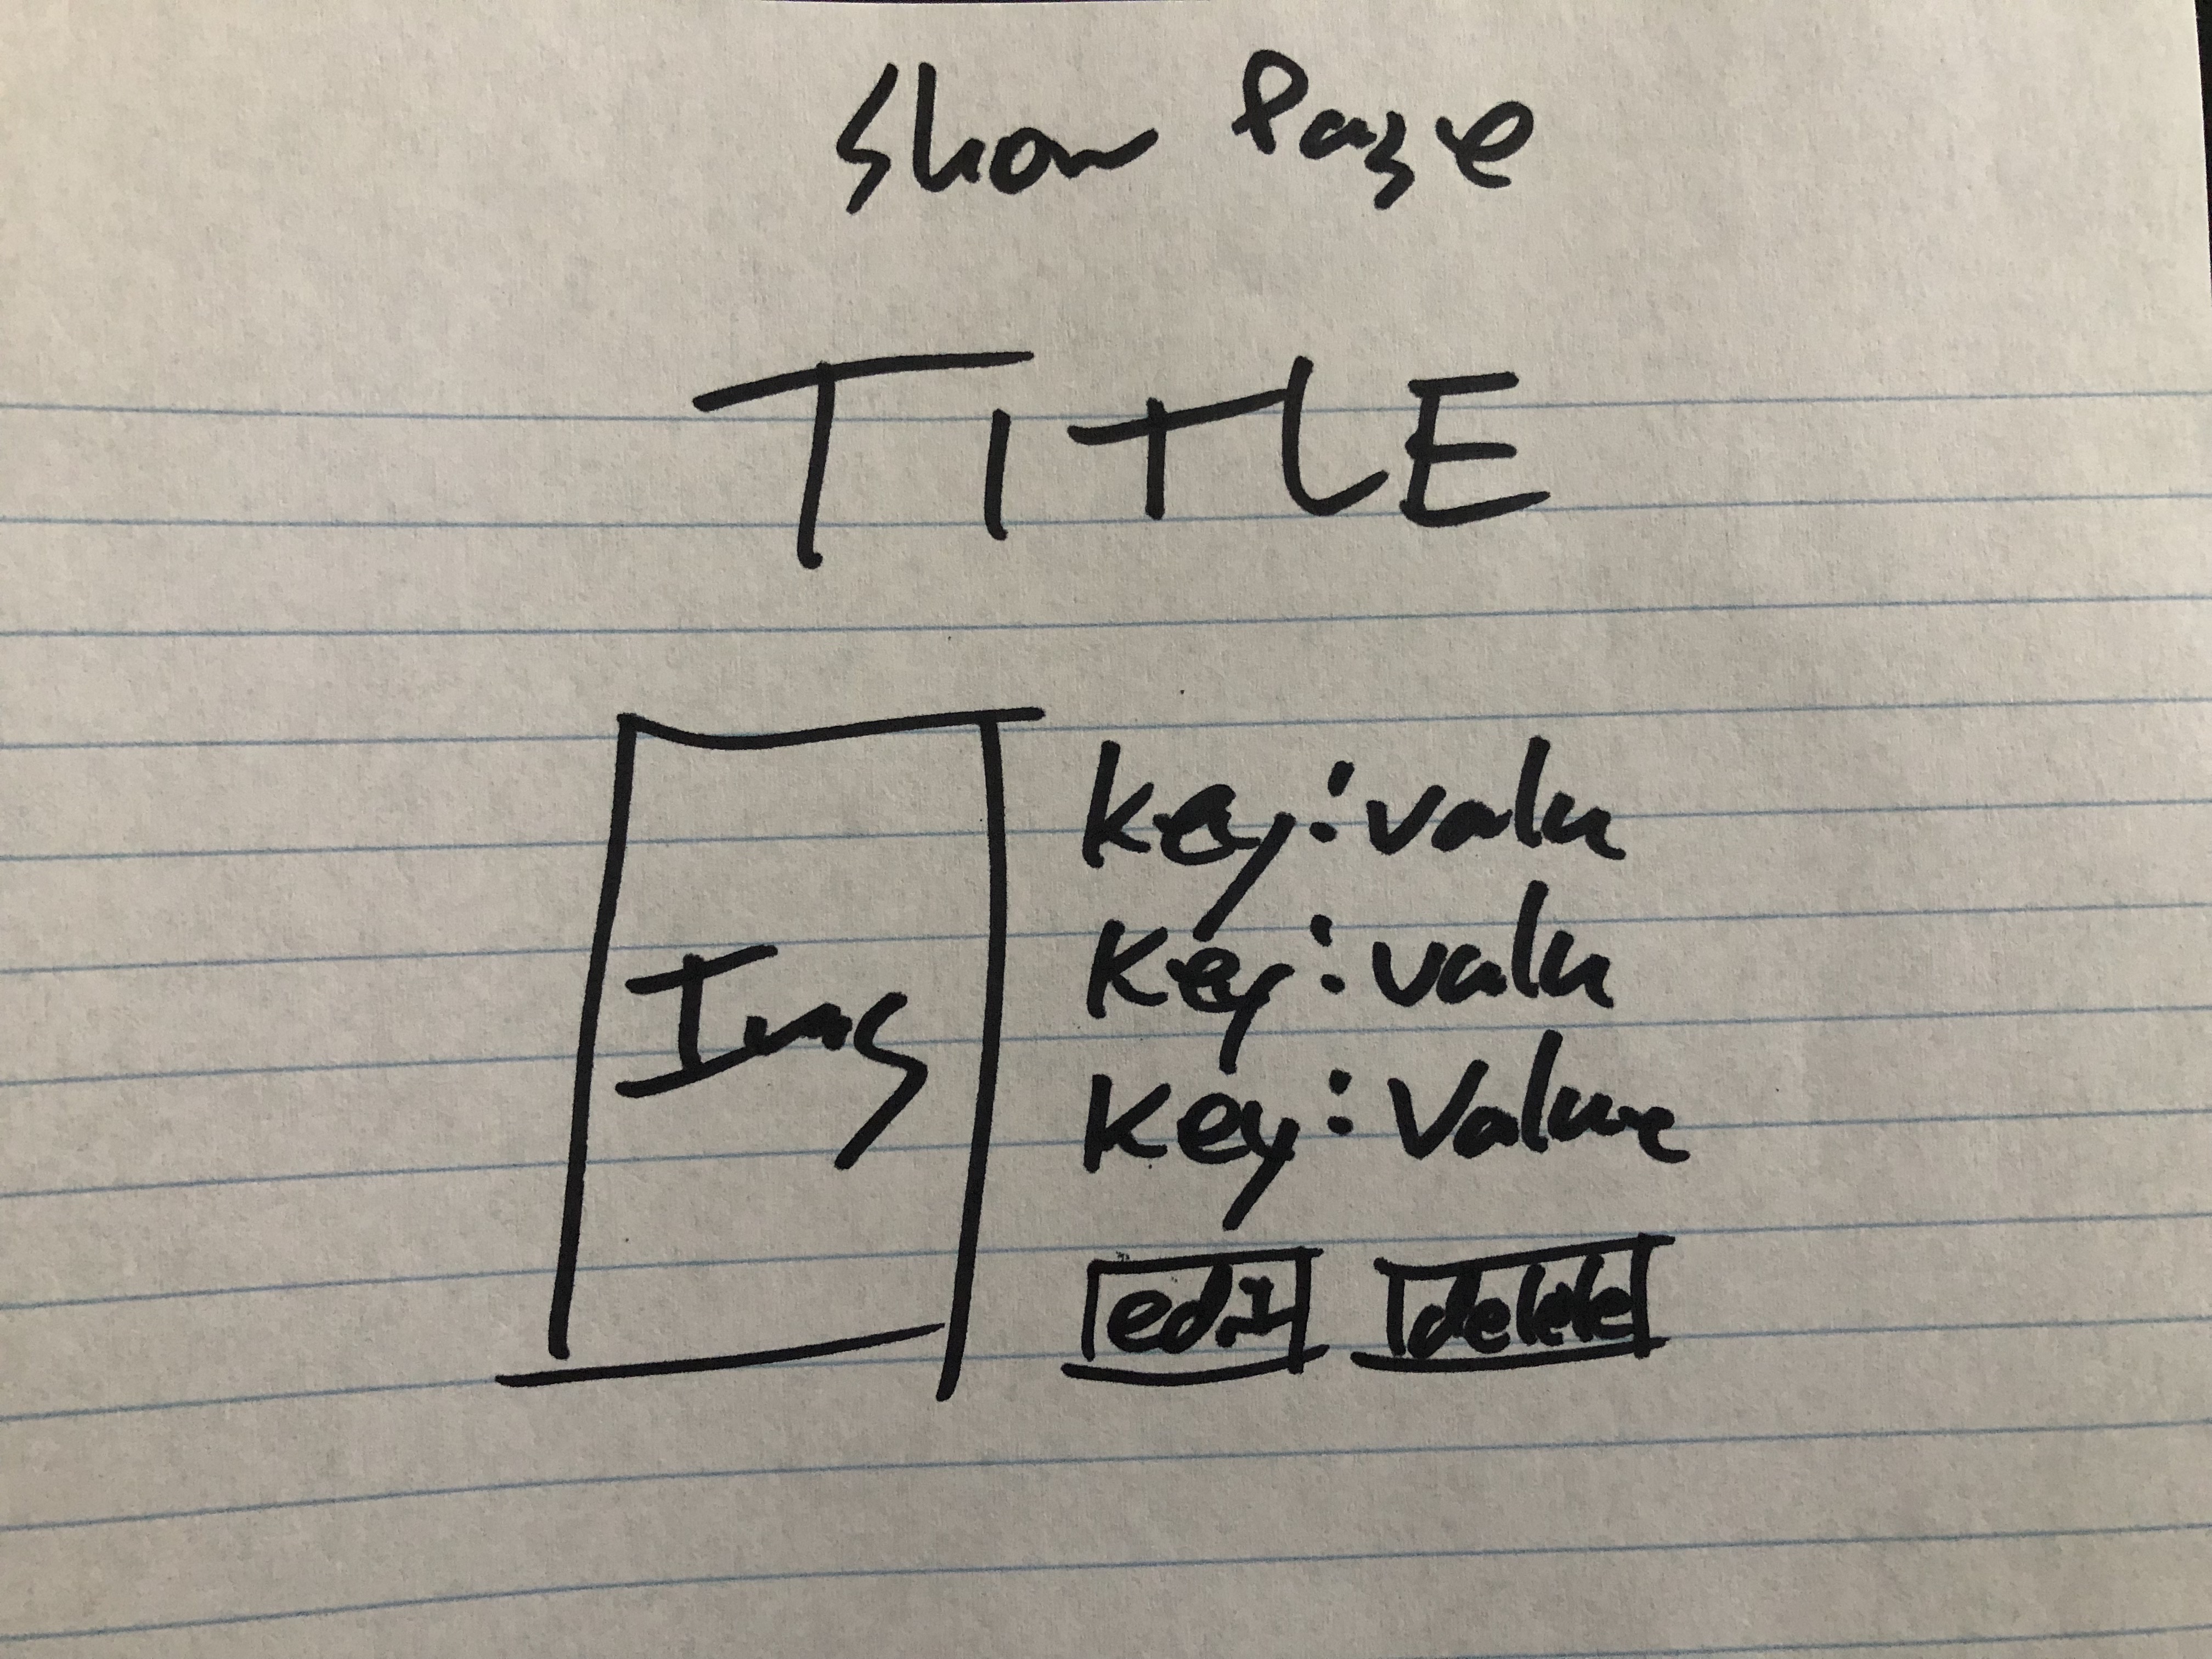 Show Page
TITLE
Img
key:value
key:value
key:Value
edit delete